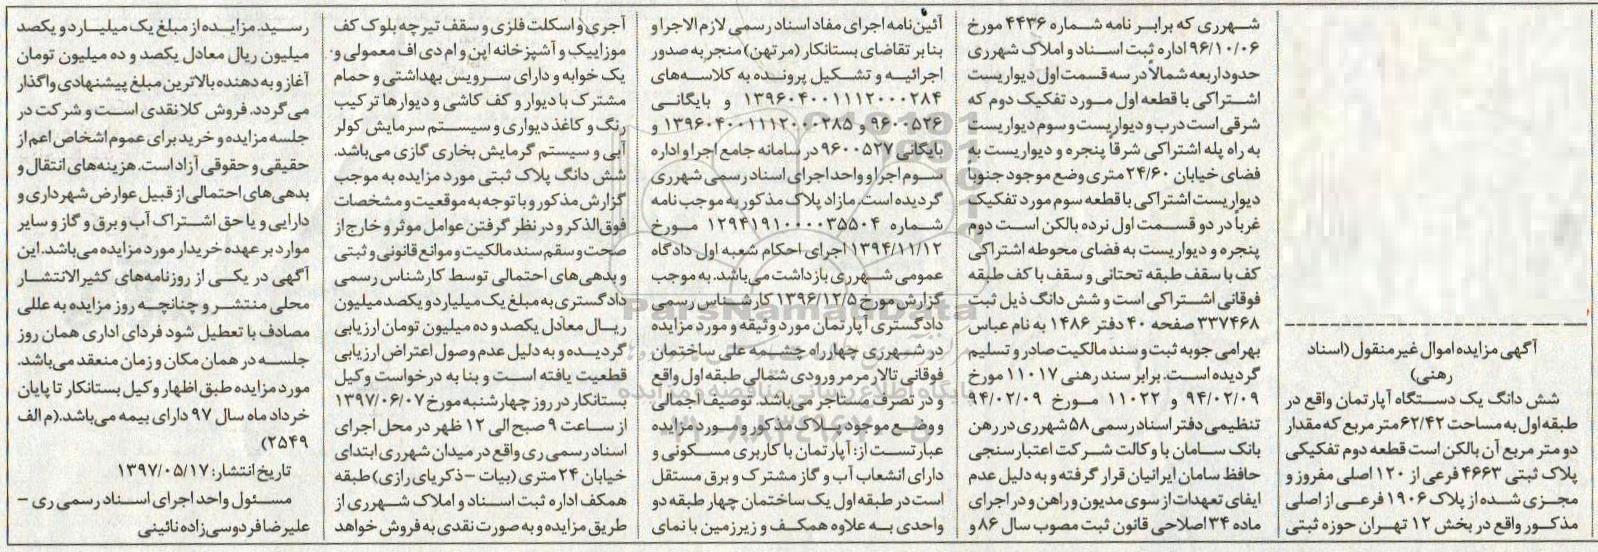 آگهی مزایده اموال غیر منقول (اسناد
رهنی)
شش دانگ یک دستگاه آپارتمان واقع در
طبقه اول به مساحت ۶۲/۴۲ متر مربع که مقدار
دو متر مربع آن بالکن است قطعه دوم تفکیکی
پلاک ثبتی ۴۶۶۳ فرعی از ۱۲۰ اصلی مفروز و
مجزی شده از پلاک ۱۹۰۶ فرعی از اصلی
مذکور واقع در بخش ۱۲ تهران حوزه ثبتی
شهرری که برابر نامه شماره ۴۴۳۶ مورخ
۹۶/۱۰/۰۶ اداره ثبت اسناد و املاک شهرری
حدود اربعه شمالاً در سه قسمت اول دیواریست
اشتراکی با قطعه اول مورد تفکیک دوم که
شرقی است درب و دیواریست و سوم دیواریست
به راه پله اشتراکی شرقاً پنجره و دیواریست به
فضای خیابان ۲۴/۶۰ متری وضع موجود جنوباً
دیواریست اشتراکی با قطعه سوم مورد تفکیک
غرباً در دو قسمت اول نرده بالکن است دوم
پنجره و دیواریست به فضای محوطه اشتراکی
کف با سقف طبقه تحتانی و سقف با کف طبقه
فوقانی اشتراکی است و شش دانگ ذیل ثبت
۳۳۷۴۶۸ صفحه ۴۰ دفتر ۱۴۸۶ به نام عباس
بهرامی جوبه ثبت و سند مالکیت صادر و تسلیم
گردیده است. برابر سند رهنی ۱۱۰۱۷ مورخ
۹۴/۰۲/۰۹ و ۱۱۰۲۲ مورخ ۹۴/۰۲/۰۹
تنظیمی دفتر اسناد رسمی ۵۸ شهرری در رهن
بانک سامان با وکالت شرکت اعتبار سنجی
حافظ سامان ایرانیان قرار گرفته و به دلیل عدم
ایفای تعهدات از سوی مدیون و راهن و در اجرای
ماده ۳۴ اصلاحی قانون ثبت مصوب سال ۸۶ و
آئین‌نامه اجرای مفاد اسناد رسمی لازم الاجرا و
بنابر تقاضای بستانکار (مرتهن) منجر به صدور
اجرائیه و تشکیل پرونده به کلاسه‌های
۱۳۹۶۰۴۰۰۱۱۱۲۰۰۰۲۸۴ و بایگانی
۹۶۰۰۵۲۶ و ۱۳۹۶۰۴۰۰۱۱۱۲۰۰۰۲۸۵ و
بایگانی ۹۶۰۰۵۲۷ در سامانه جامع اجرا و اداره
سوم اجرا و واحد اجرای اسناد رسمی شهرری
گردیده است. مازاد پلاک مذکور به موجب نامه
شماره ۱۲۹۴۱۹۱۰۰۰۰۳۵۵۰۴ مورخ
۱۳۹۴/۱۱/۱۲ اجرای احکام شعبه اول دادگاه
عمومی شهرری بازداشت می‌باشد. به موجب
گزارش مورخ ۱۳۹۶/۱۲/۵ کارشناس رسمی
دادگستری آپارتمان مورد وثیقه و مورد مزایده
در شهرری چهارراه چشمه علی ساختمان
فوقانی تالار مرمر ورودی شمالی طبقه اول واقع
و در تصرف مستاجر می‌باشد. توصیف اجمالی
و وضع موجود پلاک مذکور و مورد مزایده
عبارتست از: آپارتمان با کاربری مسکونی و
دارای انشعاب آب و گاز مشترک و برق مستقل
است در طبقه اول یک ساختمان چهار طبقه دو
واحدی به علاوه همکف و زیرزمین با نمای
آجری و اسکلت فلزی و سقف تیرچه بلوک کف
موزاییک و آشپزخانه اپن و ام دی اف معمولی و
یک خوابه و دارای سرویس بهداشتی و حمام
مشترک با دیوار و کف کاشی و دیوارها ترکیب
رنگ و کاغذ دیواری و سیستم سرمایش کولر
آبی و سیستم گرمایش بخاری گازی می‌باشد.
شش دانگ پلاک ثبتی مورد مزایده به موجب
گزارش مذکور و با توجه به موقعیت و مشخصات
فوق‌الذکر و در نظر گرفتن عوامل موثر و خارج از
صحت و سقم سند مالکیت و موانع قانونی و ثبتی
و بدهی‌های احتمالی توسط کارشناس رسمی
دادگستری به مبلغ یک میلیارد و یکصد میلیون
ریال معادل یکصد و ده میلیون تومان ارزیابی
گردیده و به دلیل عدم وصول اعتراض ارزیابی
قطعیت یافته است و بنا به درخواست وکیل
بستانکار در روز چهارشنبه مورخ ۱۳۹۷/۰۶/۰۷
از ساعت ۹ صبح الی ۱۲ ظهر در محل اجرای
اسناد رسمی ری واقع در میدان شهرری ابتدای
خیابان ۲۴ متری (بیات - ذکریای رازی) طبقه
همکف اداره ثبت اسناد و املاک شهرری از
طریق مزایده و به صورت نقدی به فروش خواهد
رسید. مزایده از مبلغ یک میلیارد و یکصد
میلیون ریال معادل یکصد و ده میلیون تومان
آغاز و به دهنده بالاترین مبلغ پیشنهادی واگذار
می گردد. فروش کلا نقدی است و شرکت در
جلسه مزایده و خرید برای عموم اشخاص اعم از
حقیقی و حقوقی آزاد است. هزینه‌های انتقال و
بدهی های احتمالی از قبیل عوارض شهرداری و
دارایی و یا حق اشتراک آب و برق و گاز و سایر
موارد بر عهده خریدار مورد مزایده می‌باشد. این
آگهی در یکی از روزنامه‌های کثیرالانتشار
محلی منتشر و چنانچه روز مزایده به عللی
مصادف با تعطیل شود فردای اداری همان روز
جلسه در همان مکان و زمان منعقد می‌باشد.
مورد مزایده طبق اظهار وکیل بستانکار تا پایان
خرداد ماه سال ۹۷ دارای بیمه می‌باشد. (م الف
۲۵۴۹)
تاریخ انتشار: ۱۳۹۷/۰۵/۱۷
مسئول واحد اجرای اسناد رسمی ری -
علیرضا فردوسی زاده نائینی
ParsNamadData